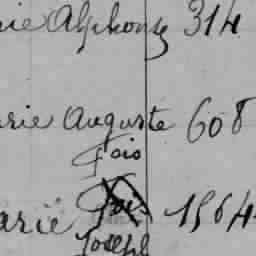 rie Alphonse 314
rie Auguste 608
Fois
arie Fois 1564
Joseph